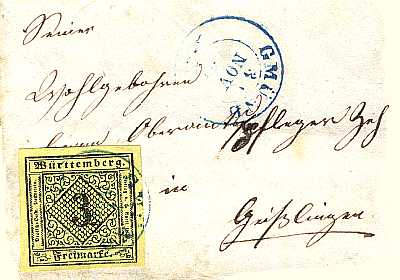 Seiner
Wohlgebohren
Herrn Oberamtspfleger Zeh
in
Geißlingen.
GMÜND
3 NOV
Württemberg.
3
Freimarke.